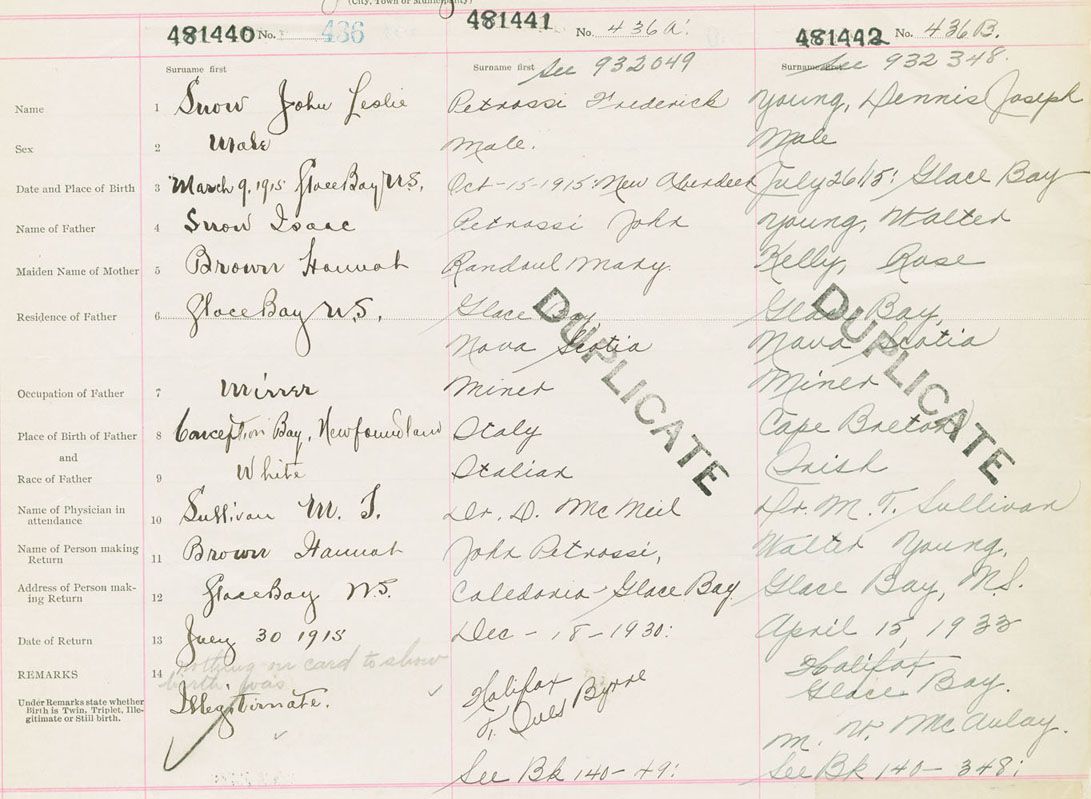 (City, Town or Municipality)
481440 No. 436
481441 No. 436A.
481442 No. 436B.
Surname first
Surname first See 932049
Surname first See 932348.
Name 1 Snow John Leslie
Petrossi Frederick
Young, Dennis Joseph
Sex 2 Male
Male.
Male
Date and Place of Birth 3 March 9, 1915 Glace Bay N.S.
Oct-15-1915: New Aberdeen
July 26/15: Glace Bay
Name of Father 4 Snow Isaac
Petrossi John
Young, Walter
Maiden Name of Mother 5 Brown Hannah
Randoul Mary.
Kelly, Rose
Residence of Father 6 Glace Bay N.S.
Glace Bay
Nova Scotia
Glace Bay,
Nova Scotia
DUPLICATE
DUPLICATE
Occupation of Father 7 Minner
Miner
Miner
Place of Birth of Father 8 Conception Bay, Newfoundland
Italy
Cape Breton
and
Race of Father 9 White
Italian
Irish
Name of Physician in
attendance 10 Sullivan M. T.
Dr. D. McNeil
Dr. M. T. Sullivan
Name of Person making
Return 11 Brown Hannah
John Petrossi,
Walter Young,
Address of Person mak-
ing Return 12 Glace Bay N.S.
Caledonia - Glace Bay
Glace Bay, N.S.
Date of Return 13 July 30 1915
Dec - 18 - 1930:
April 15, 1933
REMARKS 14
Under Remarks state whether
Birth is Twin, Triplet, Ille-
gitimate or Still birth.
nothing on card to show
birth was
Illegitimate.
Halifax
Byrne
See Bk 140 - 49:
Halifax
Glace Bay.
M. W. McAulay.
See Bk 140 - 348: